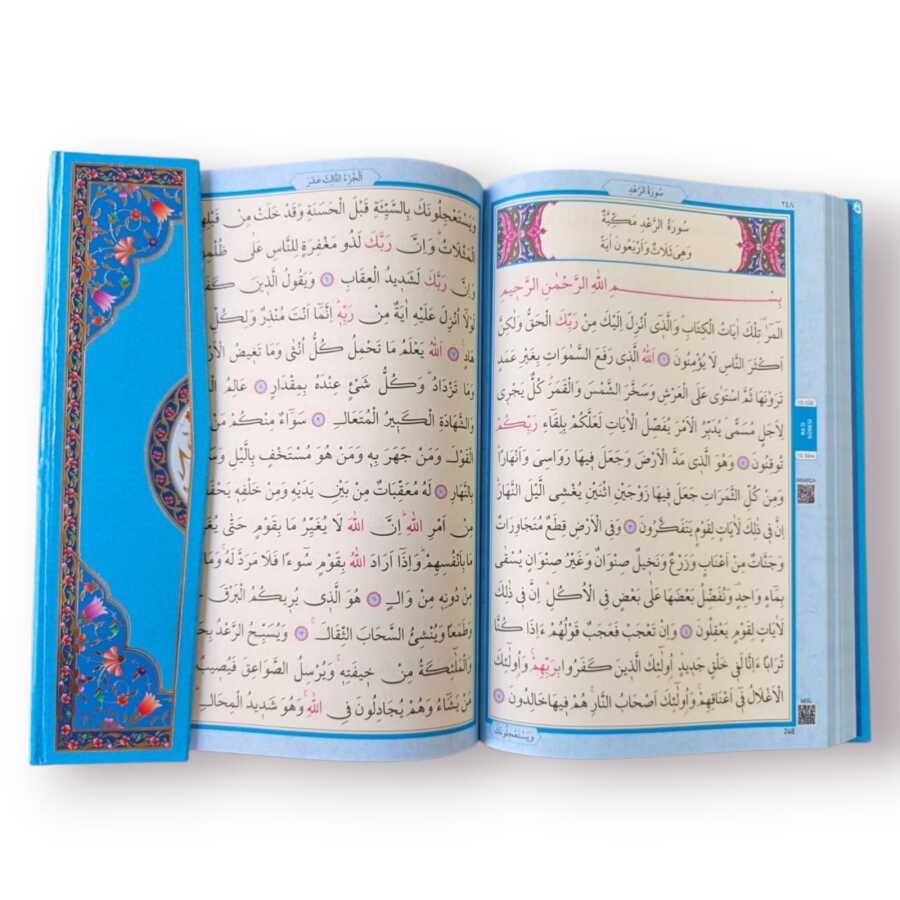 سُورَةُ الرَّعْدِ
٢٤٨
سُورَةُ الرَّعْدِ مَكِّيَّةٌ
وَهِىَ ثَلَاثٌ وَاَرْبَعُونَ اٰيَةً
بِسْــــمِ اللّٰهِ الرَّحْمٰنِ الرَّح۪يمِ
الٓمٓرٰ۠ تِلْكَ اٰيَاتُ الْكِتَابِۜ وَالَّذ۪ٓى اُنْزِلَ اِلَيْكَ مِنْ رَبِّكَ الْحَقُّ وَلٰكِنَّ
اَكْثَرَ النَّاسِ لَا يُؤْمِنُونَ ١ اَللّٰهُ الَّذ۪ى رَفَعَ السَّمٰوَاتِ بِغَيْرِ عَمَدٍ
تَرَوْنَهَا ثُمَّ اسْتَوٰى عَلَى الْعَرْشِ وَسَخَّرَ الشَّمْسَ وَالْقَمَرَۜ كُلٌّ يَجْر۪ى
لِاَجَلٍ مُسَمًّىۜ يُدَبِّرُ الْاَمْرَ يُفَصِّلُ الْاٰيَاتِ لَعَلَّكُمْ بِلِقَٓاءِ رَبِّكُمْ
تُوقِنُونَ ٢ وَهُوَ الَّذ۪ى مَدَّ الْاَرْضَ وَجَعَلَ ف۪يهَا رَوَاسِىَ وَاَنْهَارًاۜ
وَمِنْ كُلِّ الثَّمَرَاتِ جَعَلَ ف۪يهَا زَوْجَيْنِ اثْنَيْنِ يُغْشِى الَّيْلَ النَّهَارَۜ
اِنَّ ف۪ى ذٰلِكَ لَاٰيَاتٍ لِقَوْمٍ يَتَفَكَّرُونَ ٣ وَفِى الْاَرْضِ قِطَعٌ مُتَجَاوِرَاتٌ
وَجَنَّاتٌ مِنْ اَعْنَابٍ وَزَرْعٌ وَنَخ۪يلٌ صِنْوَانٌ وَغَيْرُ صِنْوَانٍ يُسْقٰى
بِمَٓاءٍ وَاحِدٍ۠ وَنُفَضِّلُ بَعْضَهَا عَلٰى بَعْضٍ فِى الْاُكُلِۜ اِنَّ ف۪ى ذٰلِكَ
لَاٰيَاتٍ لِقَوْمٍ يَعْقِلُونَ ٤ وَاِنْ تَعْجَبْ فَعَجَبٌ قَوْلُهُمْ ءَاِذَا كُنَّا
تُرَابًا ءَاِنَّا لَف۪ى خَلْقٍ جَد۪يدٍۜ اُو۬لٰٓئِكَ الَّذ۪ينَ كَفَرُوا بِرَبِّهِمْۚ وَاُو۬لٰٓئِكَ
الْاَغْلَالُ ف۪ٓى اَعْنَاقِهِمْۚ وَاُو۬لٰٓئِكَ اَصْحَابُ النَّارِۚ هُمْ ف۪يهَا خَالِدُونَ ٥
وَيَسْتَعْجِلُونَكَ
248
اَلْجُزْءُ الثَّالِثَ عَشَرَ
وَيَسْتَعْجِلُونَكَ بِالسَّيِّئَةِ قَبْلَ الْحَسَنَةِ وَقَدْ خَلَتْ مِنْ
الْمَثُلَاتُۜ وَاِنَّ رَبَّكَ لَذُو مَغْفِرَةٍ لِلنَّاسِ عَلٰى
وَاِنَّ رَبَّكَ لَشَد۪يدُ الْعِقَابِ ٦ وَيَقُولُ الَّذ۪ينَ
لَوْلَٓا اُنْزِلَ عَلَيْهِ اٰيَةٌ مِنْ رَبِّه۪ۜ اِنَّمَٓا اَنْتَ مُنْذِرٌ وَلِكُلِّ
هَادٍ۟ ٧ اَللّٰهُ يَعْلَمُ مَا تَحْمِلُ كُلُّ اُنْثٰى وَمَا تَغ۪يضُ
وَمَا تَزْدَادُۜ وَكُلُّ شَىْءٍ عِنْدَهُ بِمِقْدَارٍ ٨ عَالِمُ
وَالشَّهَادَةِ الْكَب۪يرُ الْمُتَعَالِ ٩ سَوَٓاءٌ مِنْكُمْ
الْقَوْلَ وَمَنْ جَهَرَ بِه۪ وَمَنْ هُوَ مُسْتَخْفٍ بِالَّيْلِ
بِالنَّهَارِ ١٠ لَهُ مُعَقِّبَاتٌ مِنْ بَيْنِ يَدَيْهِ وَمِنْ خَلْفِه۪
مِنْ اَمْرِ اللّٰهِۜ اِنَّ اللّٰهَ لَا يُغَيِّرُ مَا بِقَوْمٍ حَتّٰى
مَا بِاَنْفُسِهِمْۜ وَاِذَٓا اَرَادَ اللّٰهُ بِقَوْمٍ سُٓوءًا فَلَا مَرَدَّ لَهُۚ
مِنْ دُونِه۪ مِنْ وَالٍ ١١ هُوَ الَّذ۪ى يُر۪يكُمُ الْبَرْقَ
وَطَمَعًا وَيُنْشِئُ السَّحَابَ الثِّقَالَۚ ١٢ وَيُسَبِّحُ الرَّعْدُ
وَالْمَلٰٓئِكَةُ مِنْ خ۪يفَتِه۪ۚ وَيُرْسِلُ الصَّوَاعِقَ فَيُص۪يبُ
مَنْ يَشَٓاءُ وَهُمْ يُجَادِلُونَ فِى اللّٰهِۚ وَهُوَ شَد۪يدُ الْمِحَالِۜ